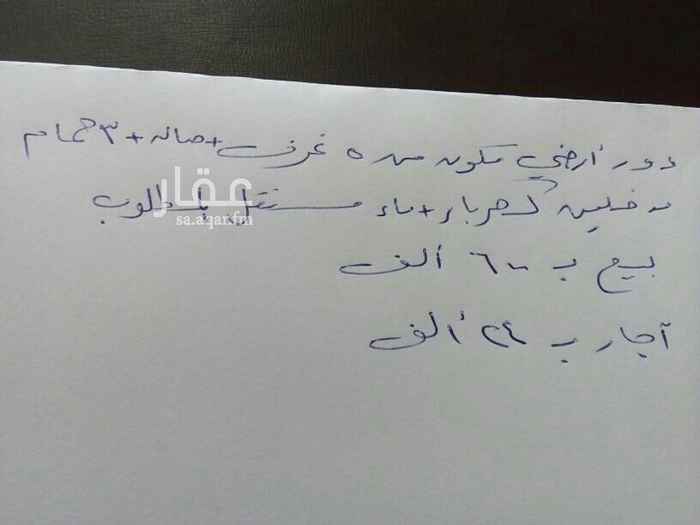 دور أرضي مكون من ٥ غرف + صاله + ٣ حمام
مدخلين كهرباء + ماء مستقل المطلوب
بيع ب ألف
آجار ب ٢٤ ألف
عقار
sa.aqar.fm